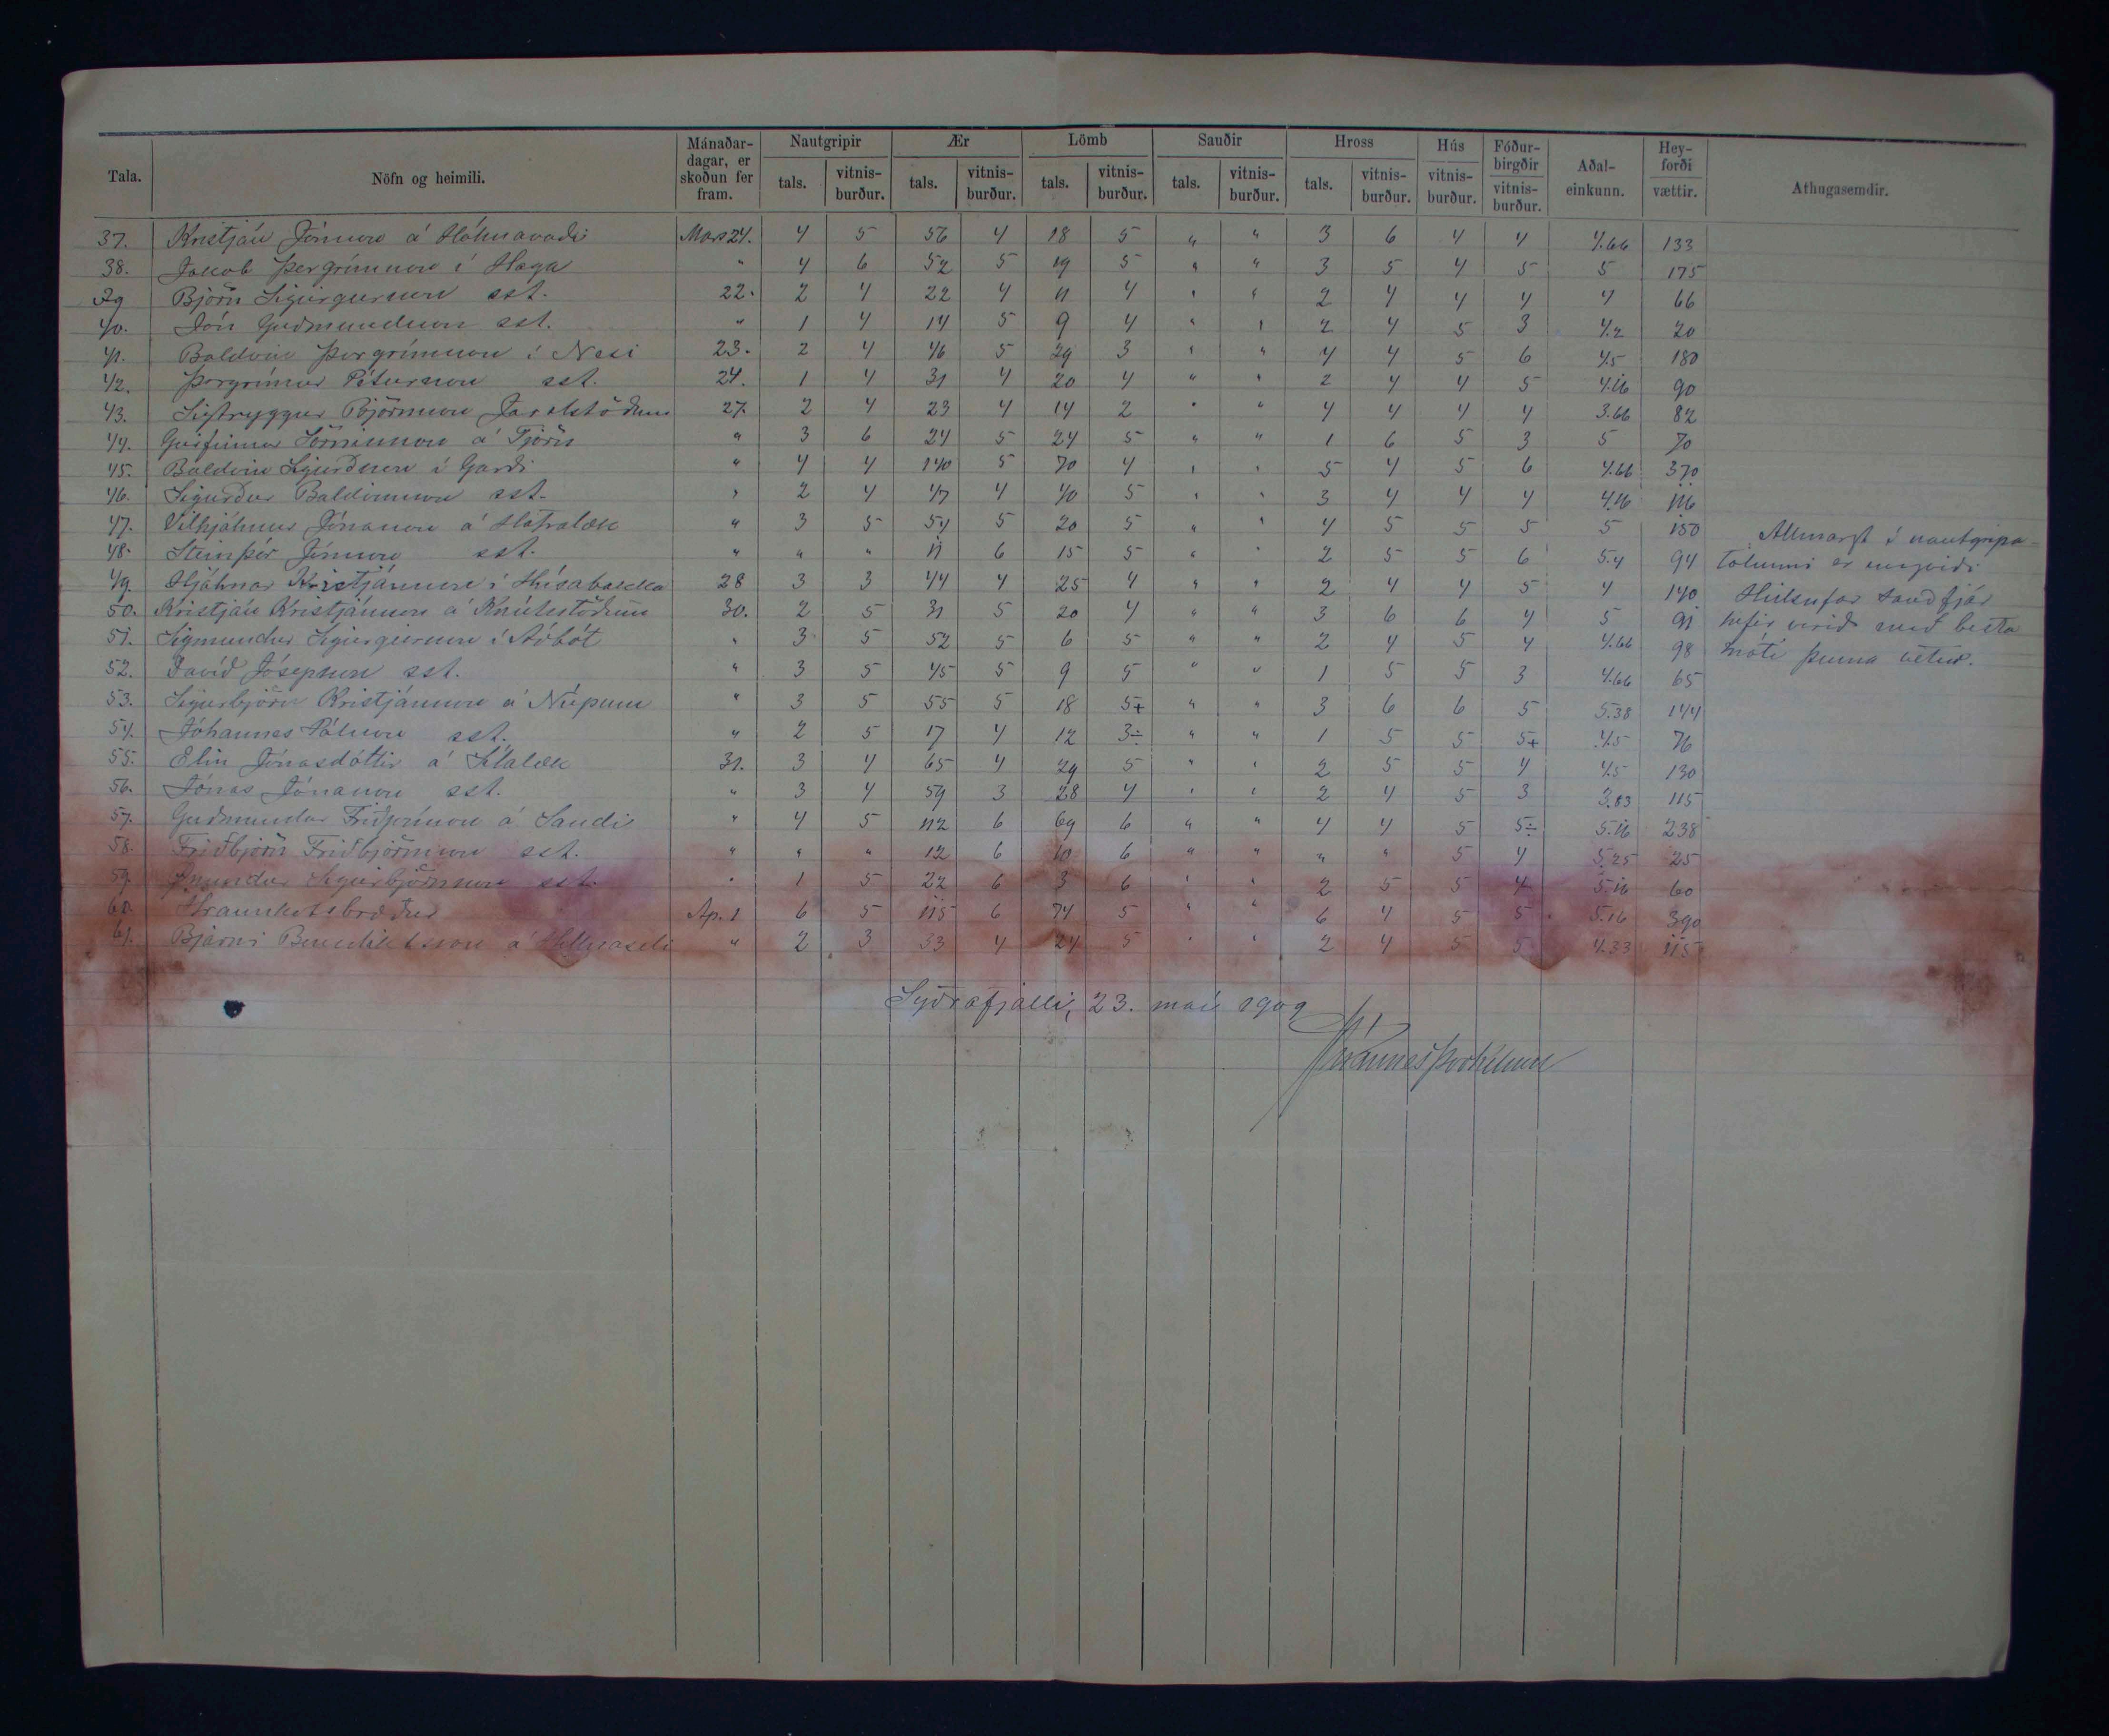 Tala. Nöfn og heimili. Mánaðar-dagar, er skoðun fer fram. Nautgripir Ær Lömb Sauðir Hross Hús Fóður-birgðir Aðal-einkunn. Hey-forði vættir. Athugasemdir.
tals. vitnis-burður. tals. vitnis-burður. tals. vitnis-burður. tals. vitnis-burður. tals. vitnis-burður. vitnis-burður. vitnis-burður.
37. Kristján Jónsson á Hólmavaði Mars 24. 4 5 56 4 18 5 " " 3 6 4 4 4.66 133
38. Jakob Þorgrímsson í Haga " 4 6 52 5 19 5 " " 3 5 4 5 5 175
39 Björn Sigurgeirsson sst. 22. 2 4 22 4 11 4 " " 2 4 4 4 4 66
40. Jón Guðmundsson sst. " 1 4 14 5 9 4 " " 2 4 5 3 4.2 20
41. Baldvin Þorgrímsson í Nesi 23. 2 4 46 5 29 3 " " 4 4 5 6 4.5 180
42. Þorgrímur Pétursson sst. 24. 1 4 31 4 20 4 " " 2 4 4 5 4.16 90
43. Sigtryggur Björnsson Jarlstöðum 27. 2 4 23 4 14 2 " " 4 4 4 4 3.66 82
44. Geirfinnur á Tjörn " 3 6 24 5 24 5 " " 1 6 5 3 5 70
45. Baldvin Sigurðsson í Garði " 4 4 140 5 70 4 " " 5 4 5 6 4.66 370
46. Sigurður Baldvinsson sst. " 2 4 47 4 40 5 " " 3 4 4 4 4.16 116
47. Vilhjálmur Jónasson á Hafralæk " 3 5 54 5 20 5 " " 4 5 5 5 5 150 Allmargt í nautgripa-
48. Steinþór Jónsson sst. " " " 11 6 15 5 " " 2 5 5 6 5.4 94 tölunni er ungviði.
49. Hjálmar Kristjánsson í Húsabakka 28 3 3 44 4 25 4 " " 2 4 4 5 4 140 Heilsufar sauðfjár
50. Kristján Kristjánsson á Knútsstöðum 30. 2 5 31 5 20 4 " " 3 6 6 4 5 91 hefir verið með besta
51. Sigmundur Sigurgeirsson í Árbót " 3 5 52 5 6 5 " " 2 4 5 4 4.66 98 móti þenna vetur.
52. Davíð Jósepsson sst. " 3 5 45 5 9 5 " " 1 5 5 3 4.66 65
53. Sigurbjörn Kristjánsson á Núpum " 3 5 55 5 18 5+ " " 3 6 6 5 5.38 144
54. Jóhannes Pálsson sst. " 2 5 17 4 12 3÷ " " 1 5 5 5+ 4.5 76
55. Elín Jónasdóttir á Sílalæk 31. 3 4 65 4 29 5 " " 2 5 5 4 4.5 130
56. Jónas Jónasson sst. " 3 4 59 3 28 4 " " 2 4 5 3 3.83 115
57. Guðmundur Friðjónsson á Sandi " 4 5 112 6 69 6 " " 4 4 5 5÷ 5.16 238
58. Friðbjörn Friðbjörnsson sst. " " " 12 6 10 6 " " " " 5 4 5.25 25
59. Ámundur Sigurbjörnsson sst. " 1 5 22 6 3 6 " " 2 5 5 4 5.16 60
60. Hraunkotsbræður Ap. 1 6 5 115 6 74 5 " " 6 4 5 5 5.16 390
61. Bjarni Benediktsson á Hellnaseli " 2 3 33 4 24 5 " " 2 4 5 5 4.33 115
Syðrafjalli, 23. maí 1909
Jóhannes Þorkelsson